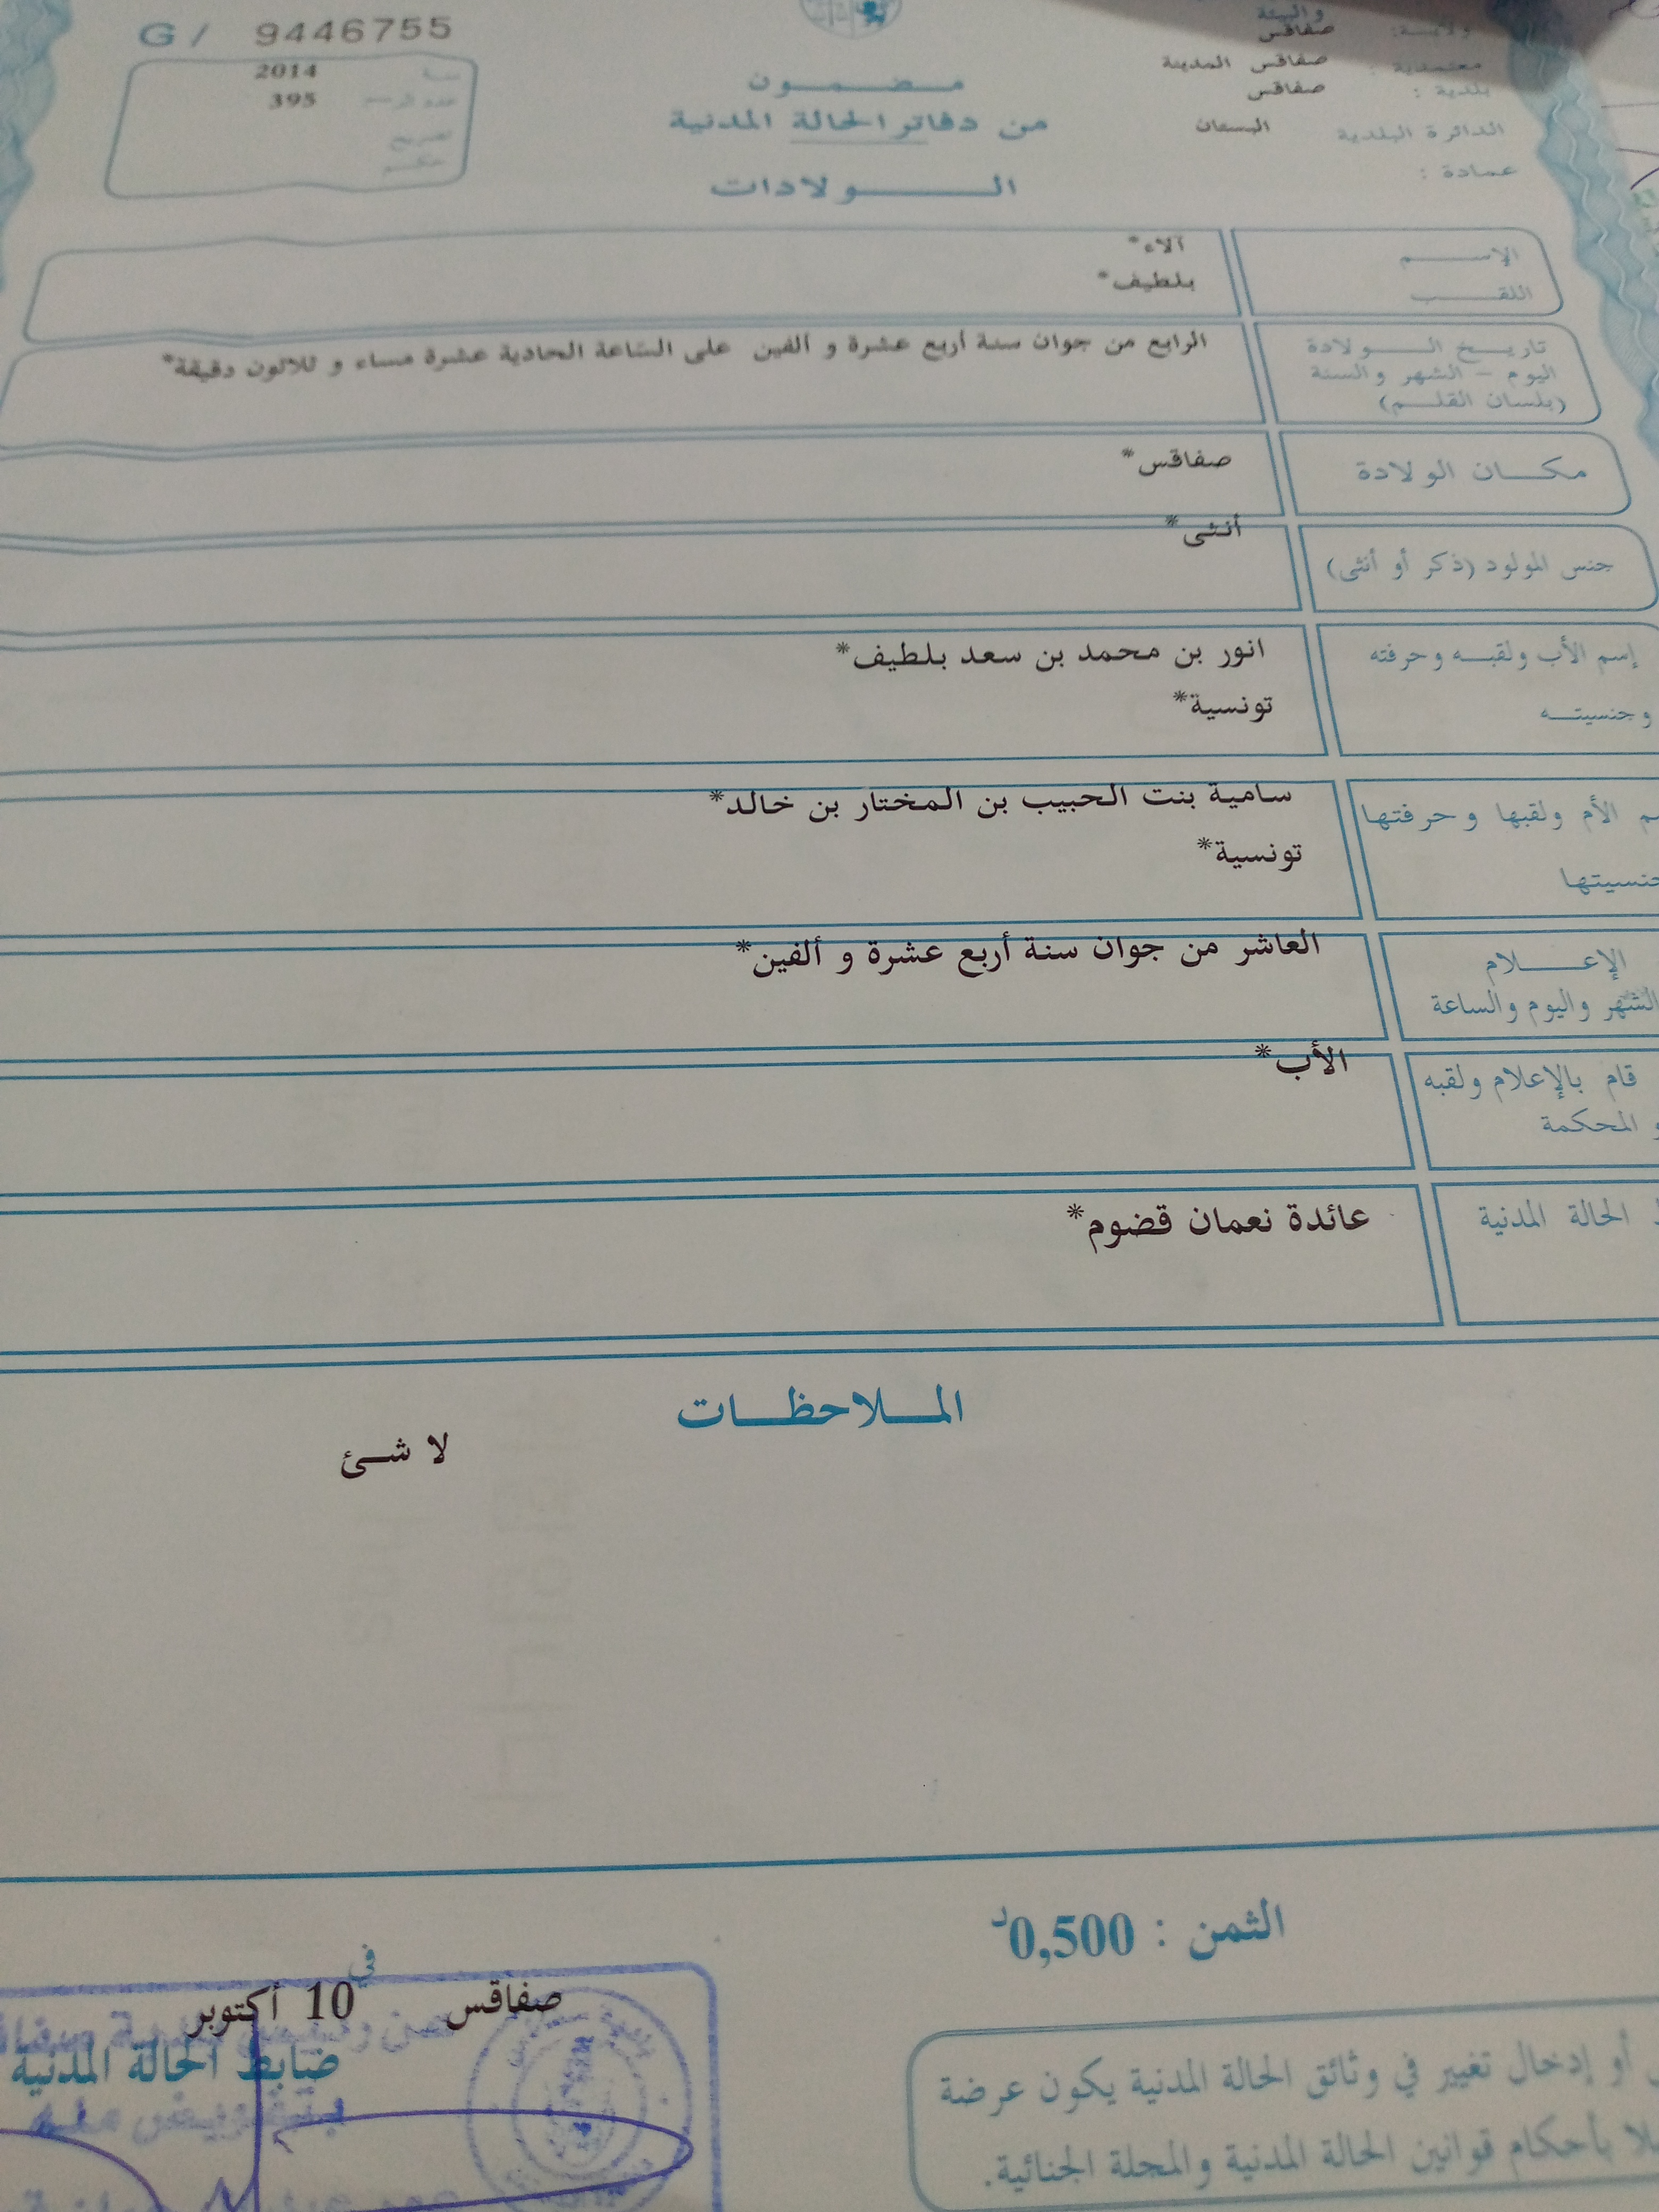 G/ 9446755
سنة 2014
عدد الرسم 395
تصريح
حكم
والبيئة
ولاية: صفاقس
معتمدية : صفاقس المدينة
بلدية : صفاقس
الدائرة البلدية البستان
عمادة :
مضمون
من دفاتر الحالة المدنية
الولادات
الإسم آلاء*
اللقب بلطيف*
تاريخ الولادة الرابع من جوان سنة أربع عشرة و ألفين على الساعة الحادية عشرة مساء و ثلاثون دقيقة*
اليوم - الشهر والسنة
(بلسان القلم)
مكان الولادة صفاقس*
جنس المولود (ذكر أو أنثى) أنثى*
إسم الأب ولقبه وحرفته انور بن محمد بن سعد بلطيف*
وجنسيته تونسية*
الأم ولقبها وحرفتها سامية بنت الحبيب بن المختار بن خالد*
جنسيتها تونسية*
الإعلام العاشر من جوان سنة أربع عشرة و ألفين*
الشهر واليوم والساعة
قام بالإعلام ولقبه الأب*
و المحكمة
الحالة المدنية عائدة نعمان قضوم*
الملاحظات
لا شئ
الثمن : 0,500د
صفاقس في 10 أكتوبر
ضابط الحالة المدنية
بتفويض منه
أو إدخال تغيير في وثائق الحالة المدنية يكون عرضة
بأحكام قوانين الحالة المدنية والمجلة الجنائية.